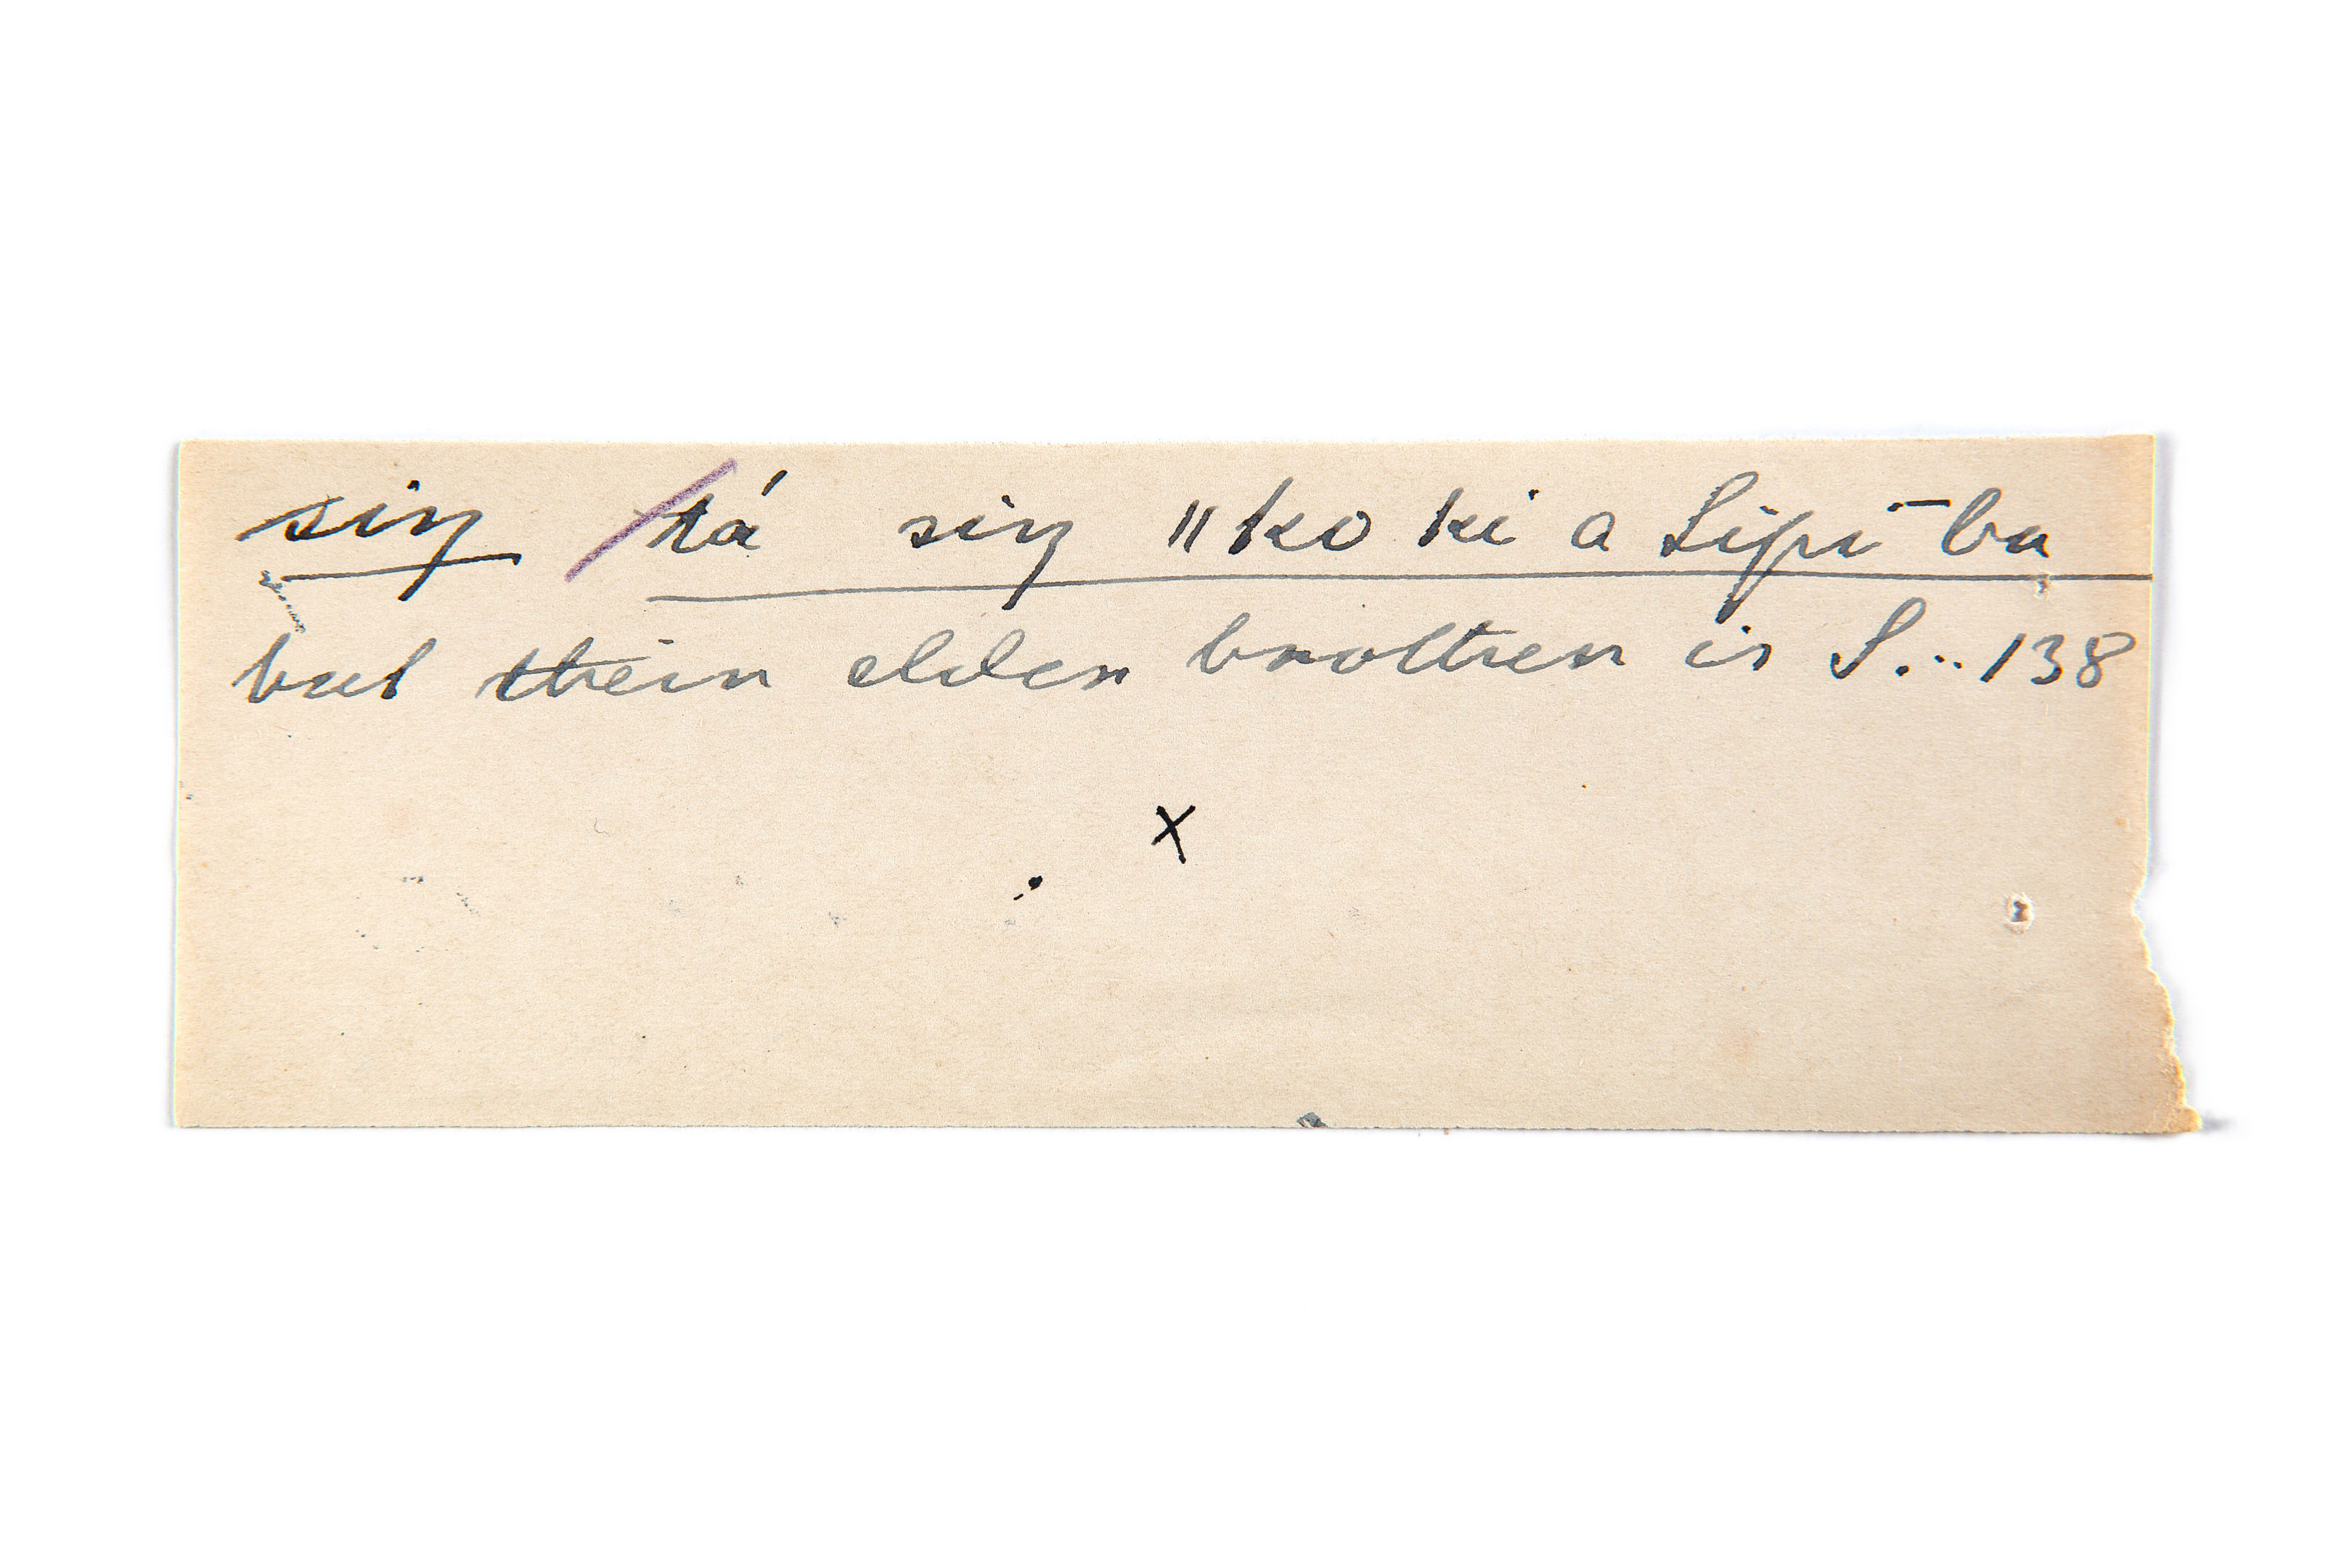 siŋ tá siŋ ॥ko ki a Sipi‾ba
but their elder brother is S... 138
x